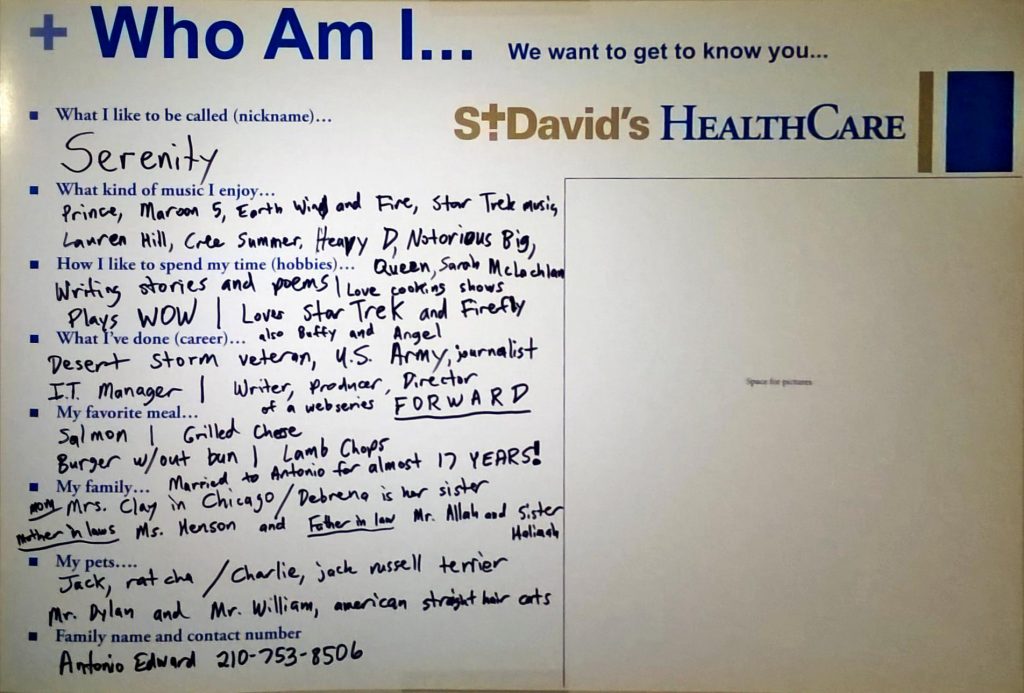 + Who Am I... We want to get to know you...
St David's HEALTHCARE
▪ What I like to be called (nickname)...
Serenity
▪ What kind of music I enjoy...
Prince, Maroon 5, Earth Wind and Fire, Star Trek music,
Lauren Hill, Cree Summer, Heavy D, Notorious Big,
Queen, Sarah McLachlan
▪ How I like to spend my time (hobbies)...
Writing stories and poems | Love cooking shows
Plays WOW | Loves Star Trek and Firefly
also Buffy and Angel
▪ What I've done (career)...
Desert Storm veteran, U.S. Army, journalist
I.T. Manager | Writer, Producer, Director
of a webseries FORWARD
▪ My favorite meal...
Salmon | Grilled Cheese
Burger w/out bun | Lamb Chops
▪ My family... Married to Antonio for almost 17 YEARS!
mom Mrs. Clay in Chicago / Debrena is her sister
Mother in laws Ms. Henson and Father in law Mr. Allah and Sister
▪ My pets....
Jack, rat cha / Charlie, jack russell terrier
Mr. Dylan and Mr. William, american straight hair cats
▪ Family name and contact number
Antonio Edward 210-753-8506
Space for pictures